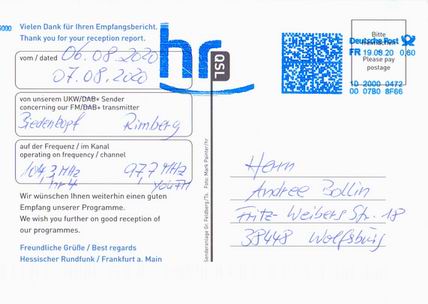 Vielen Dank für Ihren Empfangsbericht.
Thank you for your reception report.
vom / dated 06.08.2020
07.08.2020
von unserem UKW/DAB+ Sender
concerning our FM/DAB+ transmitter
Biedenkopf Rimberg
auf der Frequenz / im Kanal
operating on frequency / channel
104,3 MHz 97,7 MHz
hr4 YouFM
Wir wünschen Ihnen weiterhin einen guten
Empfang unserer Programme.
We wish you further on good reception of
our programmes.
Freundliche Grüße / Best regards
Hessischer Rundfunk / Frankfurt a. Main
hr
QSL
Senderanlage Gr. Feldberg/Ts. Foto: Mark Painter/hr
Bitte
Please pay
postage
Deutsche Post
FR 19.08.20 0,60
1D 2000 0472
00 07B0 8F66
Herrn
Andree Bollin
Fritz-Weibers Str. 18
38448 Wolfsburg